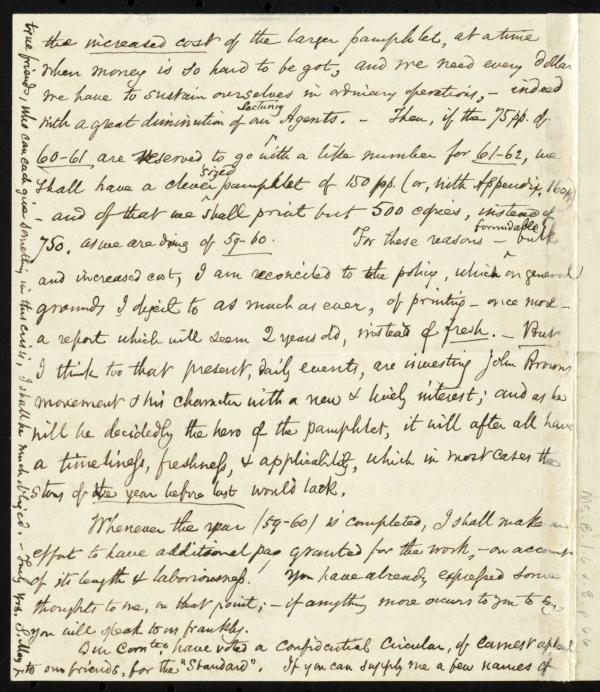 the increased cost of the larger pamphlet, at a time
when money is so hard to be got, and we need every dollar
we have to sustain ourselves in ordinary operations, - indeed
with a great diminution of our lecturing Agents. - Then, if the 75 pp. of
60-61 are reserved to go with a like number for 61-62, we
shall have a clever sized pamphlet of 150 pp. (or, with Appendix, 160)
- and of that we shall print but 500 copies, instead of
750, as we are doing of 59-60. For these reasons - formidable bulk
and increased cost, I am reconciled to the policy, which on general
grounds I object to as much as ever, of printing - once more -
a report which will seem 2 years old, instead of fresh. - But
I think too that present, daily events, are investing John Brown's
movement & his character with a new & lively interest; and as he
will be decidedly the hero of the pamphlet, it will after all have
a timeliness, freshness, & applicability, which in most cases the
story of the year before last would lack.
Whenever the year (59-60) is completed, I shall make an
effort to have additional pay granted for the work, - on account
of its length & laboriousness. You have already expressed some
thoughts to me, on that point; - if anything more occurs to you to say
you will speak to us frankly.
Our Comtee have voted a confidential Circular, of earnest appeal
to our friends, for the "Standard". If you can supply me a few names of
true friends, who can each give something in this crisis, I shall be much obliged. - Truly Yrs. S. May Jr.
Ms.B.1.6 v.8, p.66